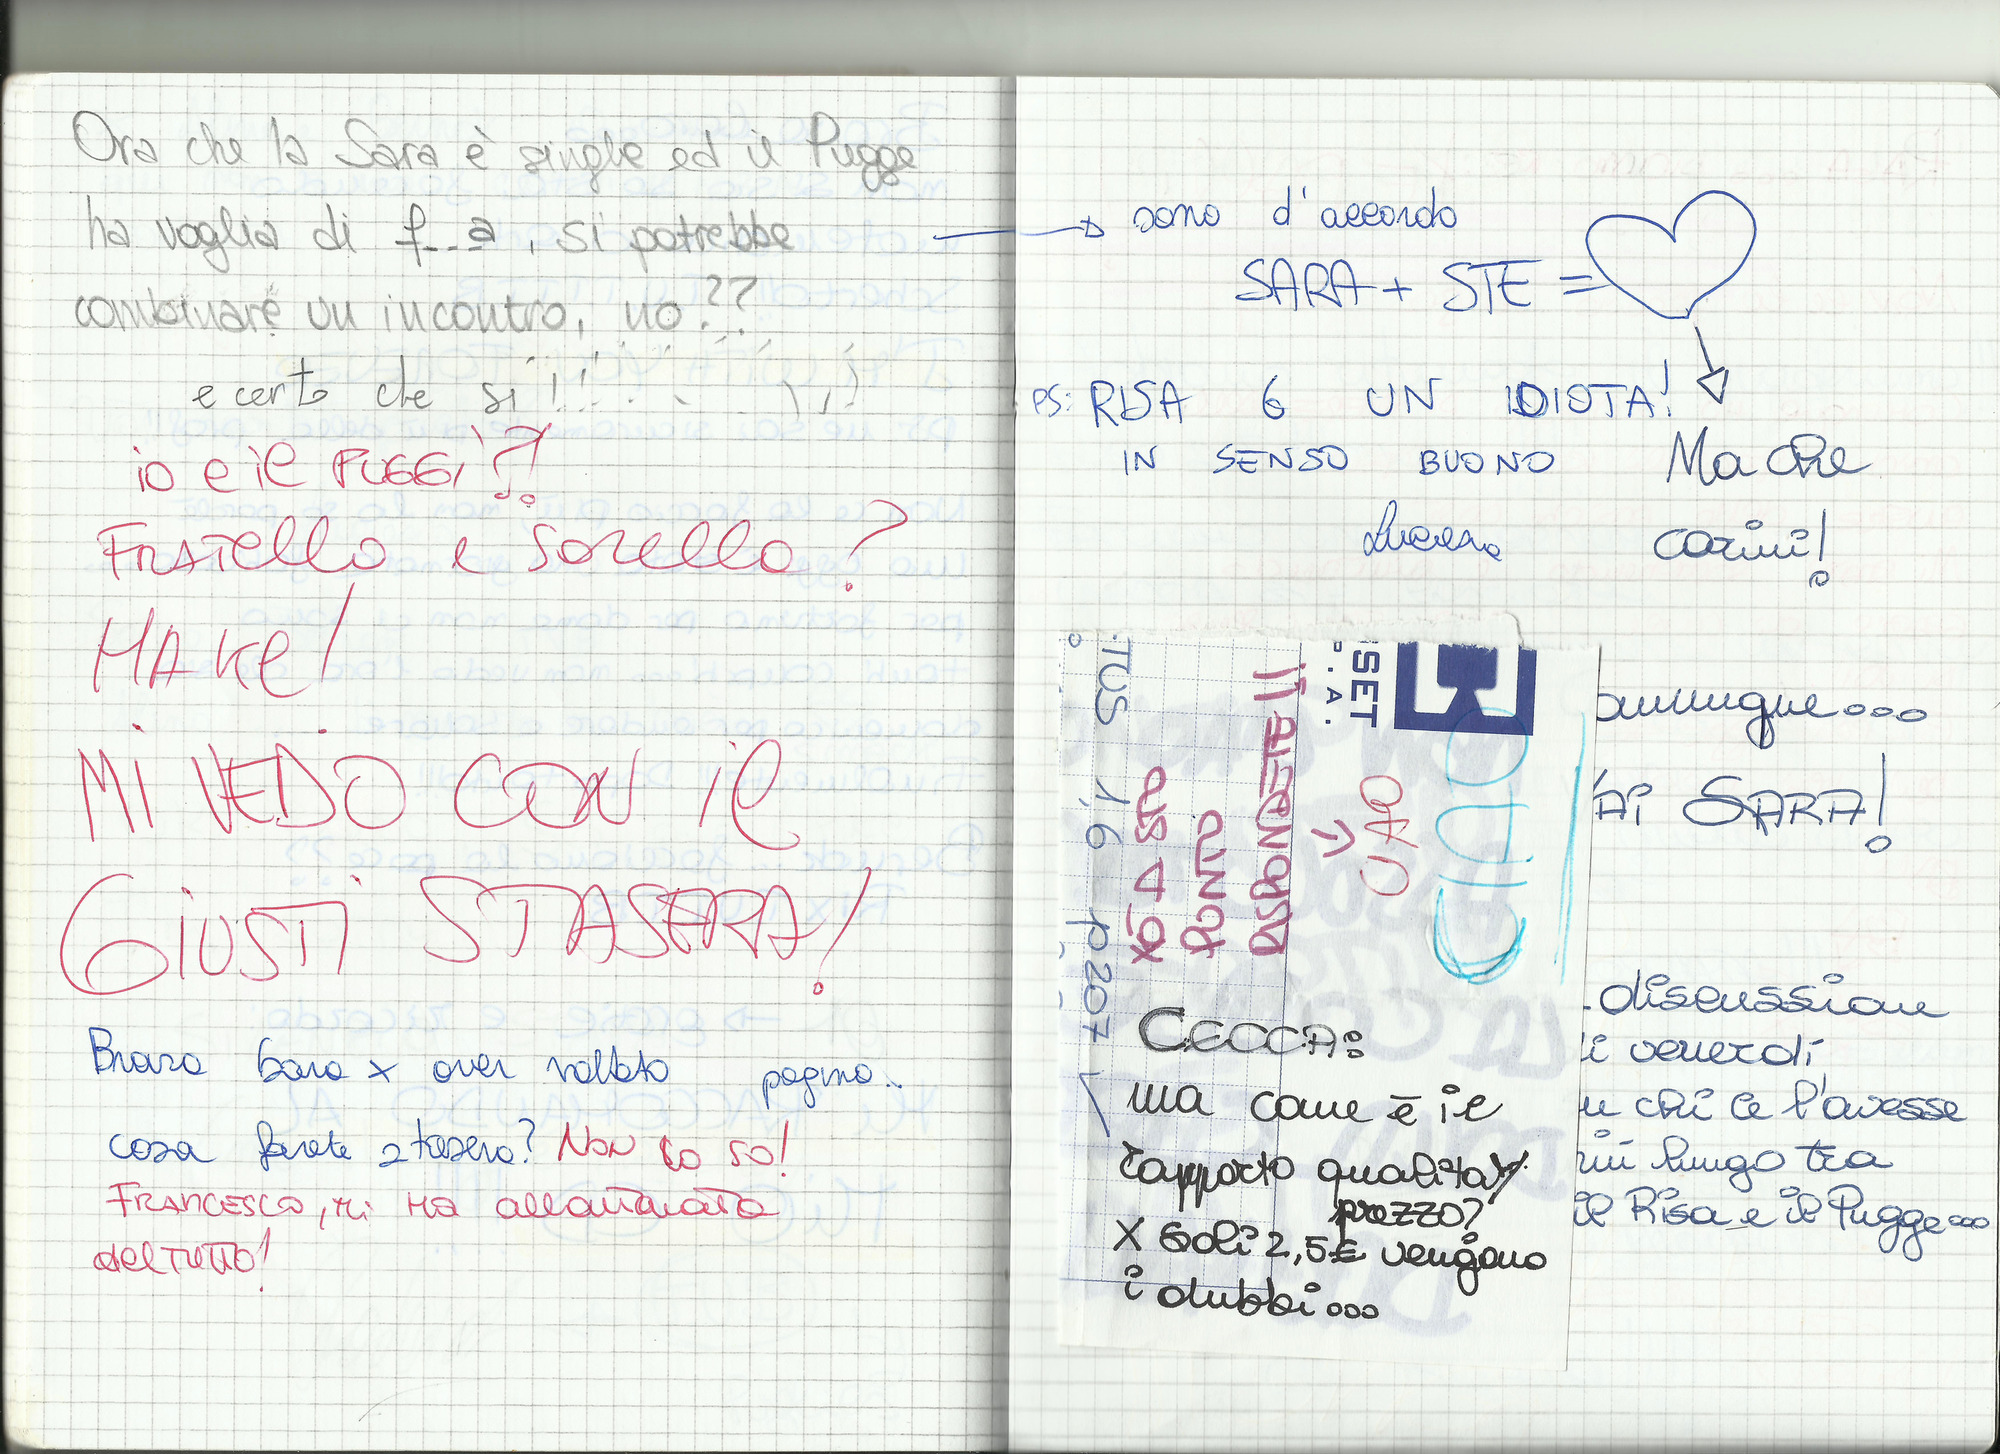 Ora che la Sara è single ed il Pugge
ha voglia di f__a, si potrebbe
combinare un incontro, no??
e certo che si!!!
io e il PUGGI?!
FRATello e sorella?
MA Ke!
MI VEDO CON il
GIUSTI STASERA!
Brava Sara x aver voltato pagina..
cosa farete stasera? NON LO SO!
FRANCESCO, MI HA allontanata
del TUTTO!
sono d'accordo
SARA + STE =
PS: RISA 6 UN IDIOTA!
IN SENSO BUONO
Ma che
carini!
omunque...
AI SARA!
SET
P.A.
CIAO
CIAO
PUNTO
TUS 1,6 p207
CECCA:
ma come è il
rapporto qualità/
prezzo?
X soli 2,5€ vengono
i dubbi...
discussione
i venerdì
chi ce l'avesse
lungo tra
il Risa e il Pugge...